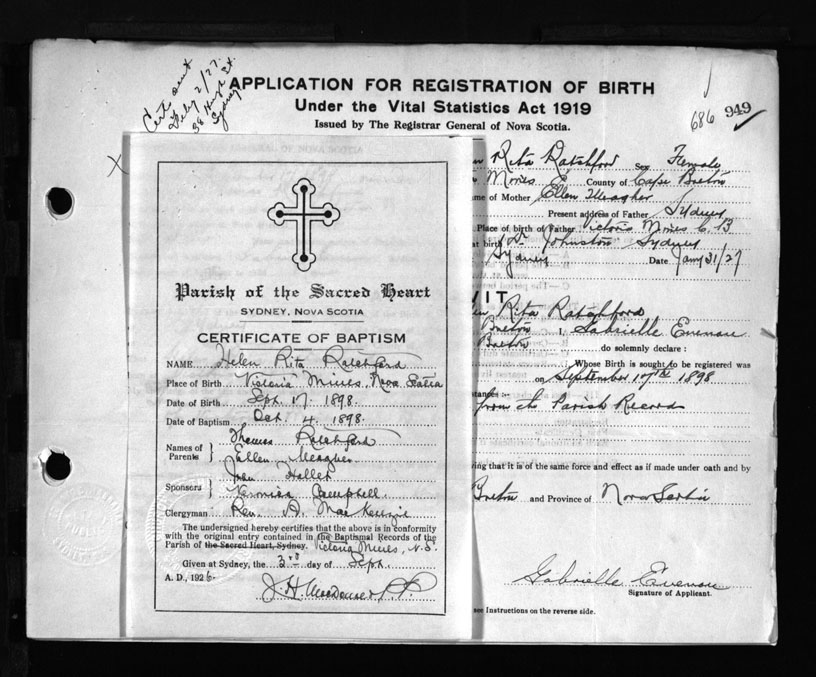 Cert sent
Feby 2/27.
Sydney
APPLICATION FOR REGISTRATION OF BIRTH
Under the Vital Statistics Act 1919
Issued by The Registrar General of Nova Scotia.
686 949
Rita Ratchford Sex Female
Mines County of Cape Breton
me of Mother Ellen Meagher
Present address of Father Sydney
Place of birth of Father Victoria Mines C. B
at birth Dr Johnston Sydney
Sydney Date Jany 31/27
VIT
Rita Ratchford
Breton I, Gabrielle
Breton do solemnly declare :
Whose Birth is sought to be registered was
on September 17th 1898
stances :-
from the Parish Records
ving that it is of the same force and effect as if made under oath and by
Breton and Province of Nova Scotia
Gabrielle
Signature of Applicant.
see Instructions on the reverse side.
Parish of the Sacred Heart
SYDNEY, NOVA SCOTIA
CERTIFICATE OF BAPTISM
NAME Helen Rita Ratchford
Place of Birth Victoria Mines, Nova Scotia
Date of Birth Sept. 17. 1898.
Date of Baptism Oct. 4. 1898.
Names of Parents } Thomas Ratchford
Ellen Meagher
Sponsors } John
Campbell.
Clergyman Rev. A. MacKenzie
The undersigned hereby certifies that the above is in conformity
with the original entry contained in the Baptismal Records of the
Parish of the Sacred Heart, Sydney. Victoria Mines, N.S.
Given at Sydney, the 2nd day of Sept.
A. D., 1926.
J. H. P.P.